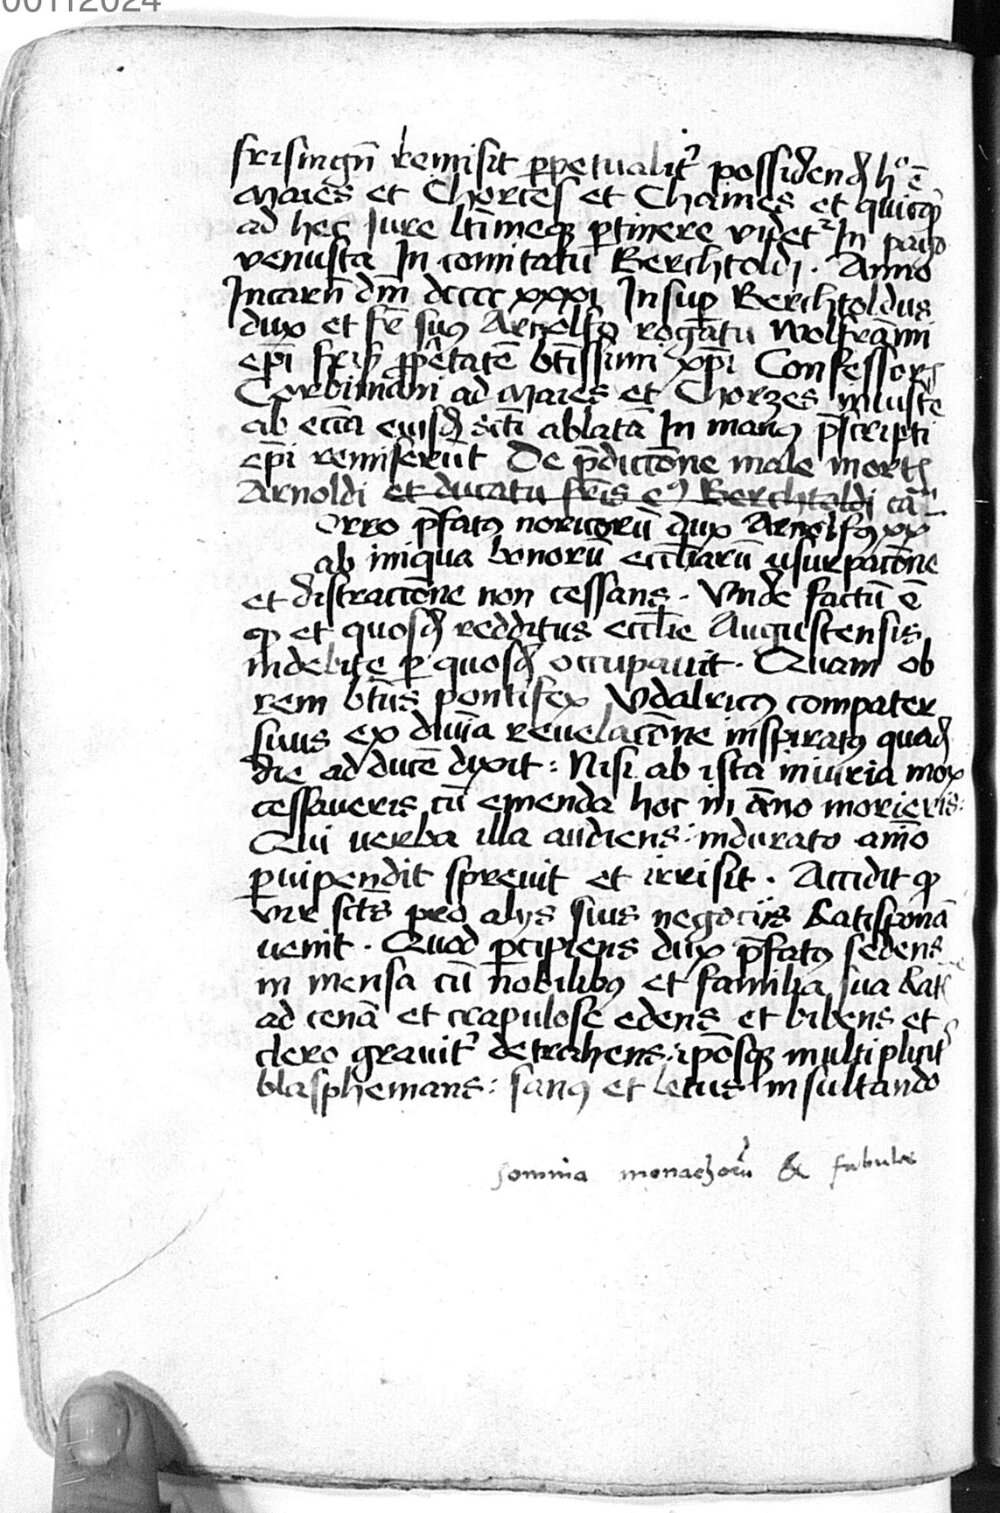 00112024
frisingn̄ remisit ꝑpetualit᷑ possidend hͦ ē
Maies et Chorces et Chaines et quicq̨
ad hec Iure ltīmeqꝫ ꝑtinere videtᷣ In pago
venusta In comitatu Berchtoldi . Anno
Incarn̄ dn̄i dcccc xxxi Insup̱ Berchtoldus
dux et fr̄ suꝯ Arnolfꝯ rogatu Wolframi
ep̄i fris̄ ꝓp̄etatē bt̄issimi xp̄i Confessoris
Corbiniani ad Maies et Chorzes iniuste
ab eccīa eiusd̄ sc̄ti ablatā In manꝯ p̄scripti
ep̄i remiserūt De p̄diccōne male mortꝭ
Arnoldi et ducatu fr̄is eꝯ Berchtoldi ca
orro p̄fatꝯ noricorū dux Arnolfꝯ xx
ab iniqua bonorū eccl̄iarū usurpacōne
et distraccōne non cessans . Vnde factū ē
ꝙ et quosd̄ redditus eccl̄ie Augustensis
indebite ꝑ quosd̄ occupauit . Quam ob
rem bt̄us pontifex Vdalricꝯ compater
suus ex diuīa reuelacōne inspiratꝯ quad̄
die ad ducē dixit : Nisi ab ista iniuria mox
cessaueris cū emenda hoc in āno morieris :
Qui uerba illa audiens : indurato aīmo
ꝑuipendit spreuit et irrisit . Accidit ꝙ
vir sctūs pro alijs suis negocijs Ratisponā
uenit . Quod ꝑcipiens dux p̄fatꝯ sedens
in mensa cū nobilibꝯ et familia sua Rat
ad cenā et crapulose edens et bibens et
clero grauit᷑ detrahens : ip̄osqꝫ multiplicit᷑
blasphemans : sanꝯ et letus insultando
somnia monachorū & fabulas